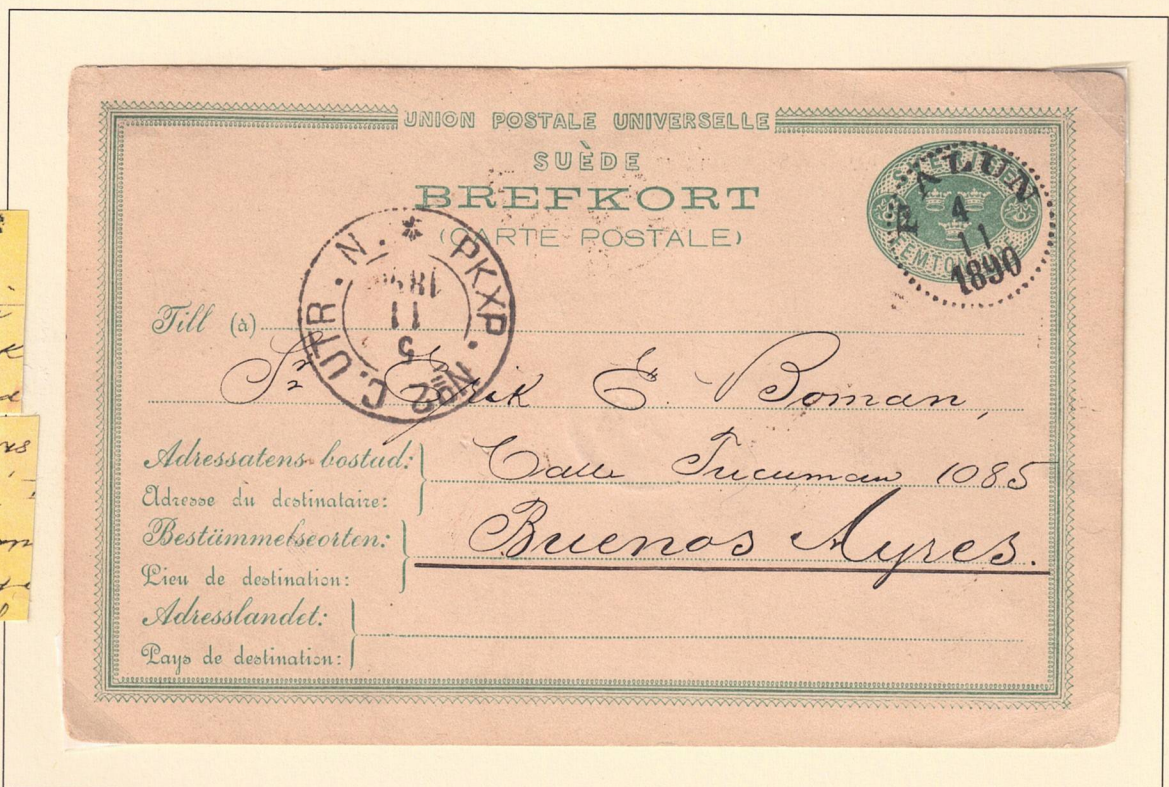 UNION POSTALE UNIVERSELLE
SUÈDE
BREFKORT
(CARTE POSTALE)
FALUN
4
11
1890
PKXP. No 2 C. UTR. N.
5
11
Till (à)
Sr Erik E. Boman,
Adressatens bostad:
Adresse du destinataire:
Calle Tucuman 1085
Bestämmelseorten:
Lieu de destination:
Buenos Ayres.
Adresslandet:
Pays de destination: